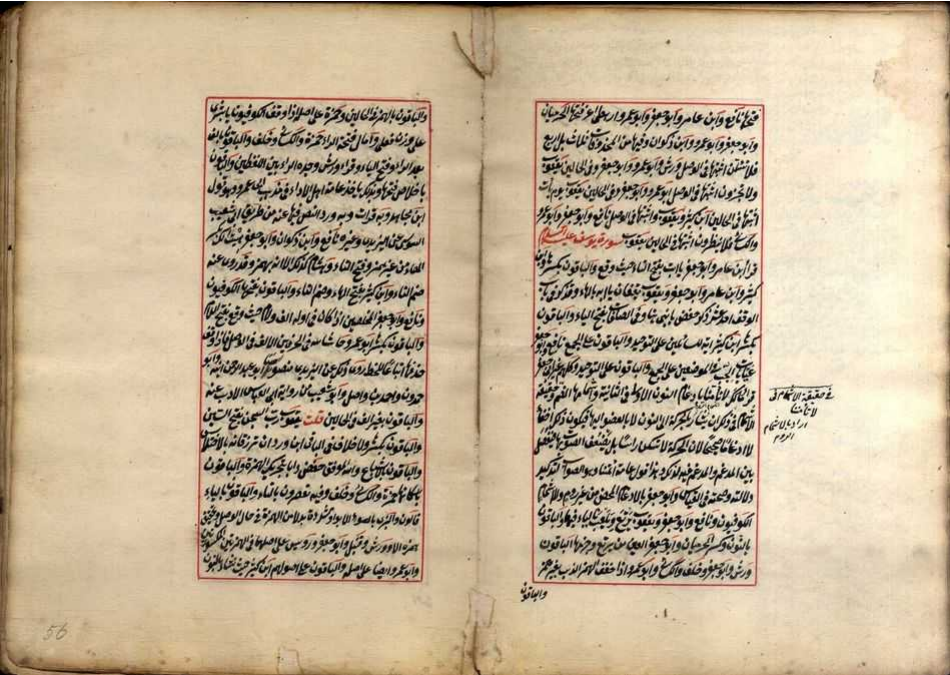 فتحها نافع وابن عامر وابو جعفر وابو عمرو ارهطى اعز فتحها الكوفيون
وابو جعفر وابو عمرو وابن ذكوان وفيها من المحذوفات ثلاث بل اربع
فلا تسئلن اثبتها فى الوصل ورش وابو عمرو وابو جعفر وفى الحالين يعقوب
ولا تخزون اثبتها فى الوصل ابو عمرو وابو جعفر وفى الحالين يعقوب يوم يات
اثبتها فى الحالين ابن كثير ويعقوب واثبتها فى الوصل نافع وابو جعفر وابو عمرو
والكسائى فلا تنظرون اثبتها فى الحالين يعقوب سورة يوسف عليه السلام
قرأ ابن عامر وابو جعفر يا ابت بفتح التاء حيث وقع والباقون بكسرها وابن
كثير وابن عامر وابو جعفر ويعقوب يقفان يا ابه بالهاء وقد ذكر فى باب
الوقف احد عشر ذكر حفص يا بنى هنا وفى الصافات بفتح الياء والباقون
بكسر ابن كثير اية للسائلين على التوحيد والباقون على الجمع نافع وابو جعفر
غيابات الجب فى الموضعين على الجمع والباقون على التوحيد وكلهم
قرأ مالك لا تأمنا بادغام النون الاولى فى الثانية واشمامها الضم
الاشمام فى ذلك ان يشار بالحركة الى النون لا بالعضو اليها فيكون ذلك
لا ادغاما صحيحا لان الحركة لا تسكن راسا بل يضعف الصوت فيفصل
بين المدغم والمدغم فيه لذلك وهذا قول عامة ائمتنا وهو الصواب لتاكيد
دلالته وصحته فى القياس وابو جعفر بالادغام المحض من غير روم ولا اشمام
الكوفيون ونافع وابو جعفر ويعقوب يرتع ويلعب بالياء فيهما والباقون
بالنون وكسر الحرميان وابو جعفر العين من يرتع وجزمها الباقون
ورش وابو جعفر وخلف والكسائى وابو عمرو اذا خفف الهمز الذيب بغير همز
والباقون
فى حقيقة الاشمام فى
لا تأمنا
اراد بالاشمام
الروم
والباقون بالهمز فى الحالين وحمزة على اصله اذا وقف الكوفيون يا بشرى
على وزن فعلى وامال فتحة الراء حمزة والكسائى وخلف والباقون بالف
بعد الراء وفتح الياء وقرأ ورش وحده الراء بين اللفظين والباقون
باخلاص فتحها وبذلك ياخذ عامة اهل الاداء فى مذهب ابى عمرو وهو قول
ابن مجاهد وبه قرأت وبه ورد النص فيها عنه من طريق ابى شعيب
السوسى عن اليزيدى وغيره نافع وابن ذكوان وابو جعفر هيت لك بكسر
الهاء من غير همز وفتح التاء وهشام كذلك الا انه يهمز وقد روى عنه
ضم التاء وابن كثير بفتح الهاء وضم التاء والباقون بفتحهما الكوفيون
ونافع وابو جعفر المخلصين اذا كان فى اوله الف ولام حيث وقع بفتح اللام
والباقون بكسرها ابو عمرو حاشا لله فى الحرفين بالالف فى الوصل فاذا وقف
حذفها اتباعا للخط روى ذلك عن اليزيدى منصوصا ابو عبد الرحمن ابنه وابو
حمدون واحمد بن واصل وابو شعيب من رواية ابى العباس الاديب عنه
والباقون بغير الف فى الحالين قلت يعقوب رب السجن بفتح السين
والباقون بكسرها ولا خلاف فى الباقى ابن وردان ترزقانه بالاختلاس
والباقون بالاشباع والله الموفق حفص دأبا بتحريك الهمزة والباقون
باسكانها حمزة والكسائى وخلف وفيه تعصرون بالتاء والباقون بالياء
قالون والبزى بالسوء الا بواو مشددة بدلا من الهمزة فى حال الوصل وتحقيق
همزة الا وورش وقنبل وابو جعفر ورويس على اصلهم فى الهمزتين المكسورتين
وابو عمرو ايضا على اصله والباقون على اصولهم ابن كثير حيث نشاء بالنون
56